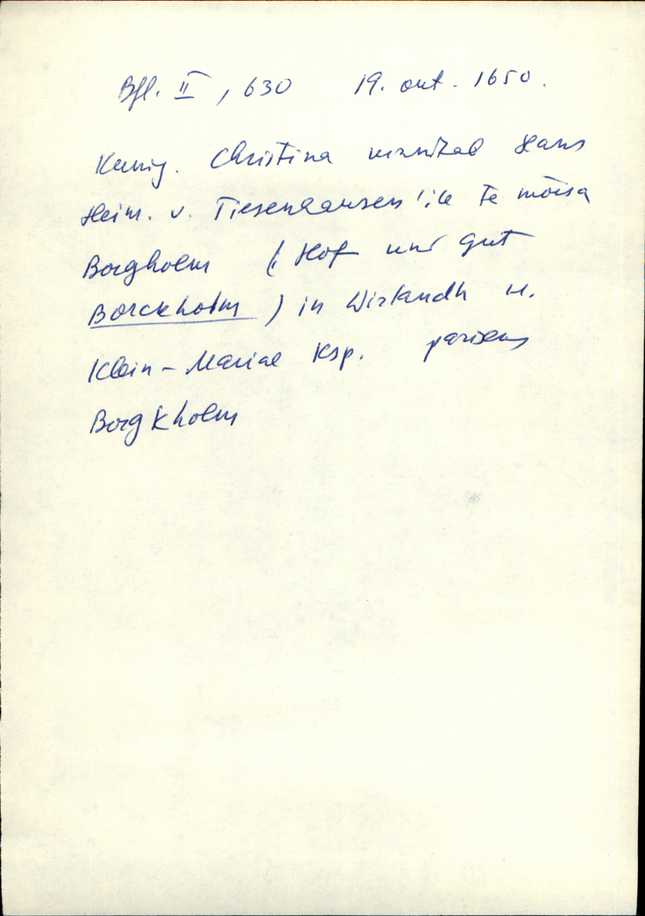 Bfl. II, 630 19. okt. 1650.
Kunig. Christina annetab Hans
Heinr. v. Tiesenhausen'ile te mõisa
Borgholm (: Hof und Gut
Borckholm) in Wirlandh u.
Klein-Mariae Ksp.
Borgkholm